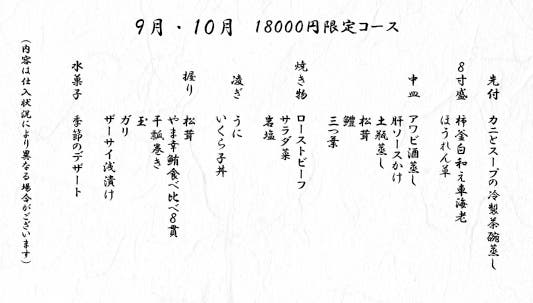 9月・10月　18000円限定コース
先付　カニとスープの冷製茶碗蒸し
8寸盛　柿釜白和え車海老
ほうれん草
中皿　アワビ酒蒸し
肝ソースかけ
土瓶蒸し
松茸
鱧
三つ葉
焼き物　ローストビーフ
サラダ菜
岩塩
凌ぎ　うに
いくら子丼
握り　松茸
やま幸鮪食べ比べ8貫
干瓢巻き
玉
ガリ
ザーサイ浅漬け
水菓子　季節のデザート
(内容は仕入状況により異なる場合がございます)